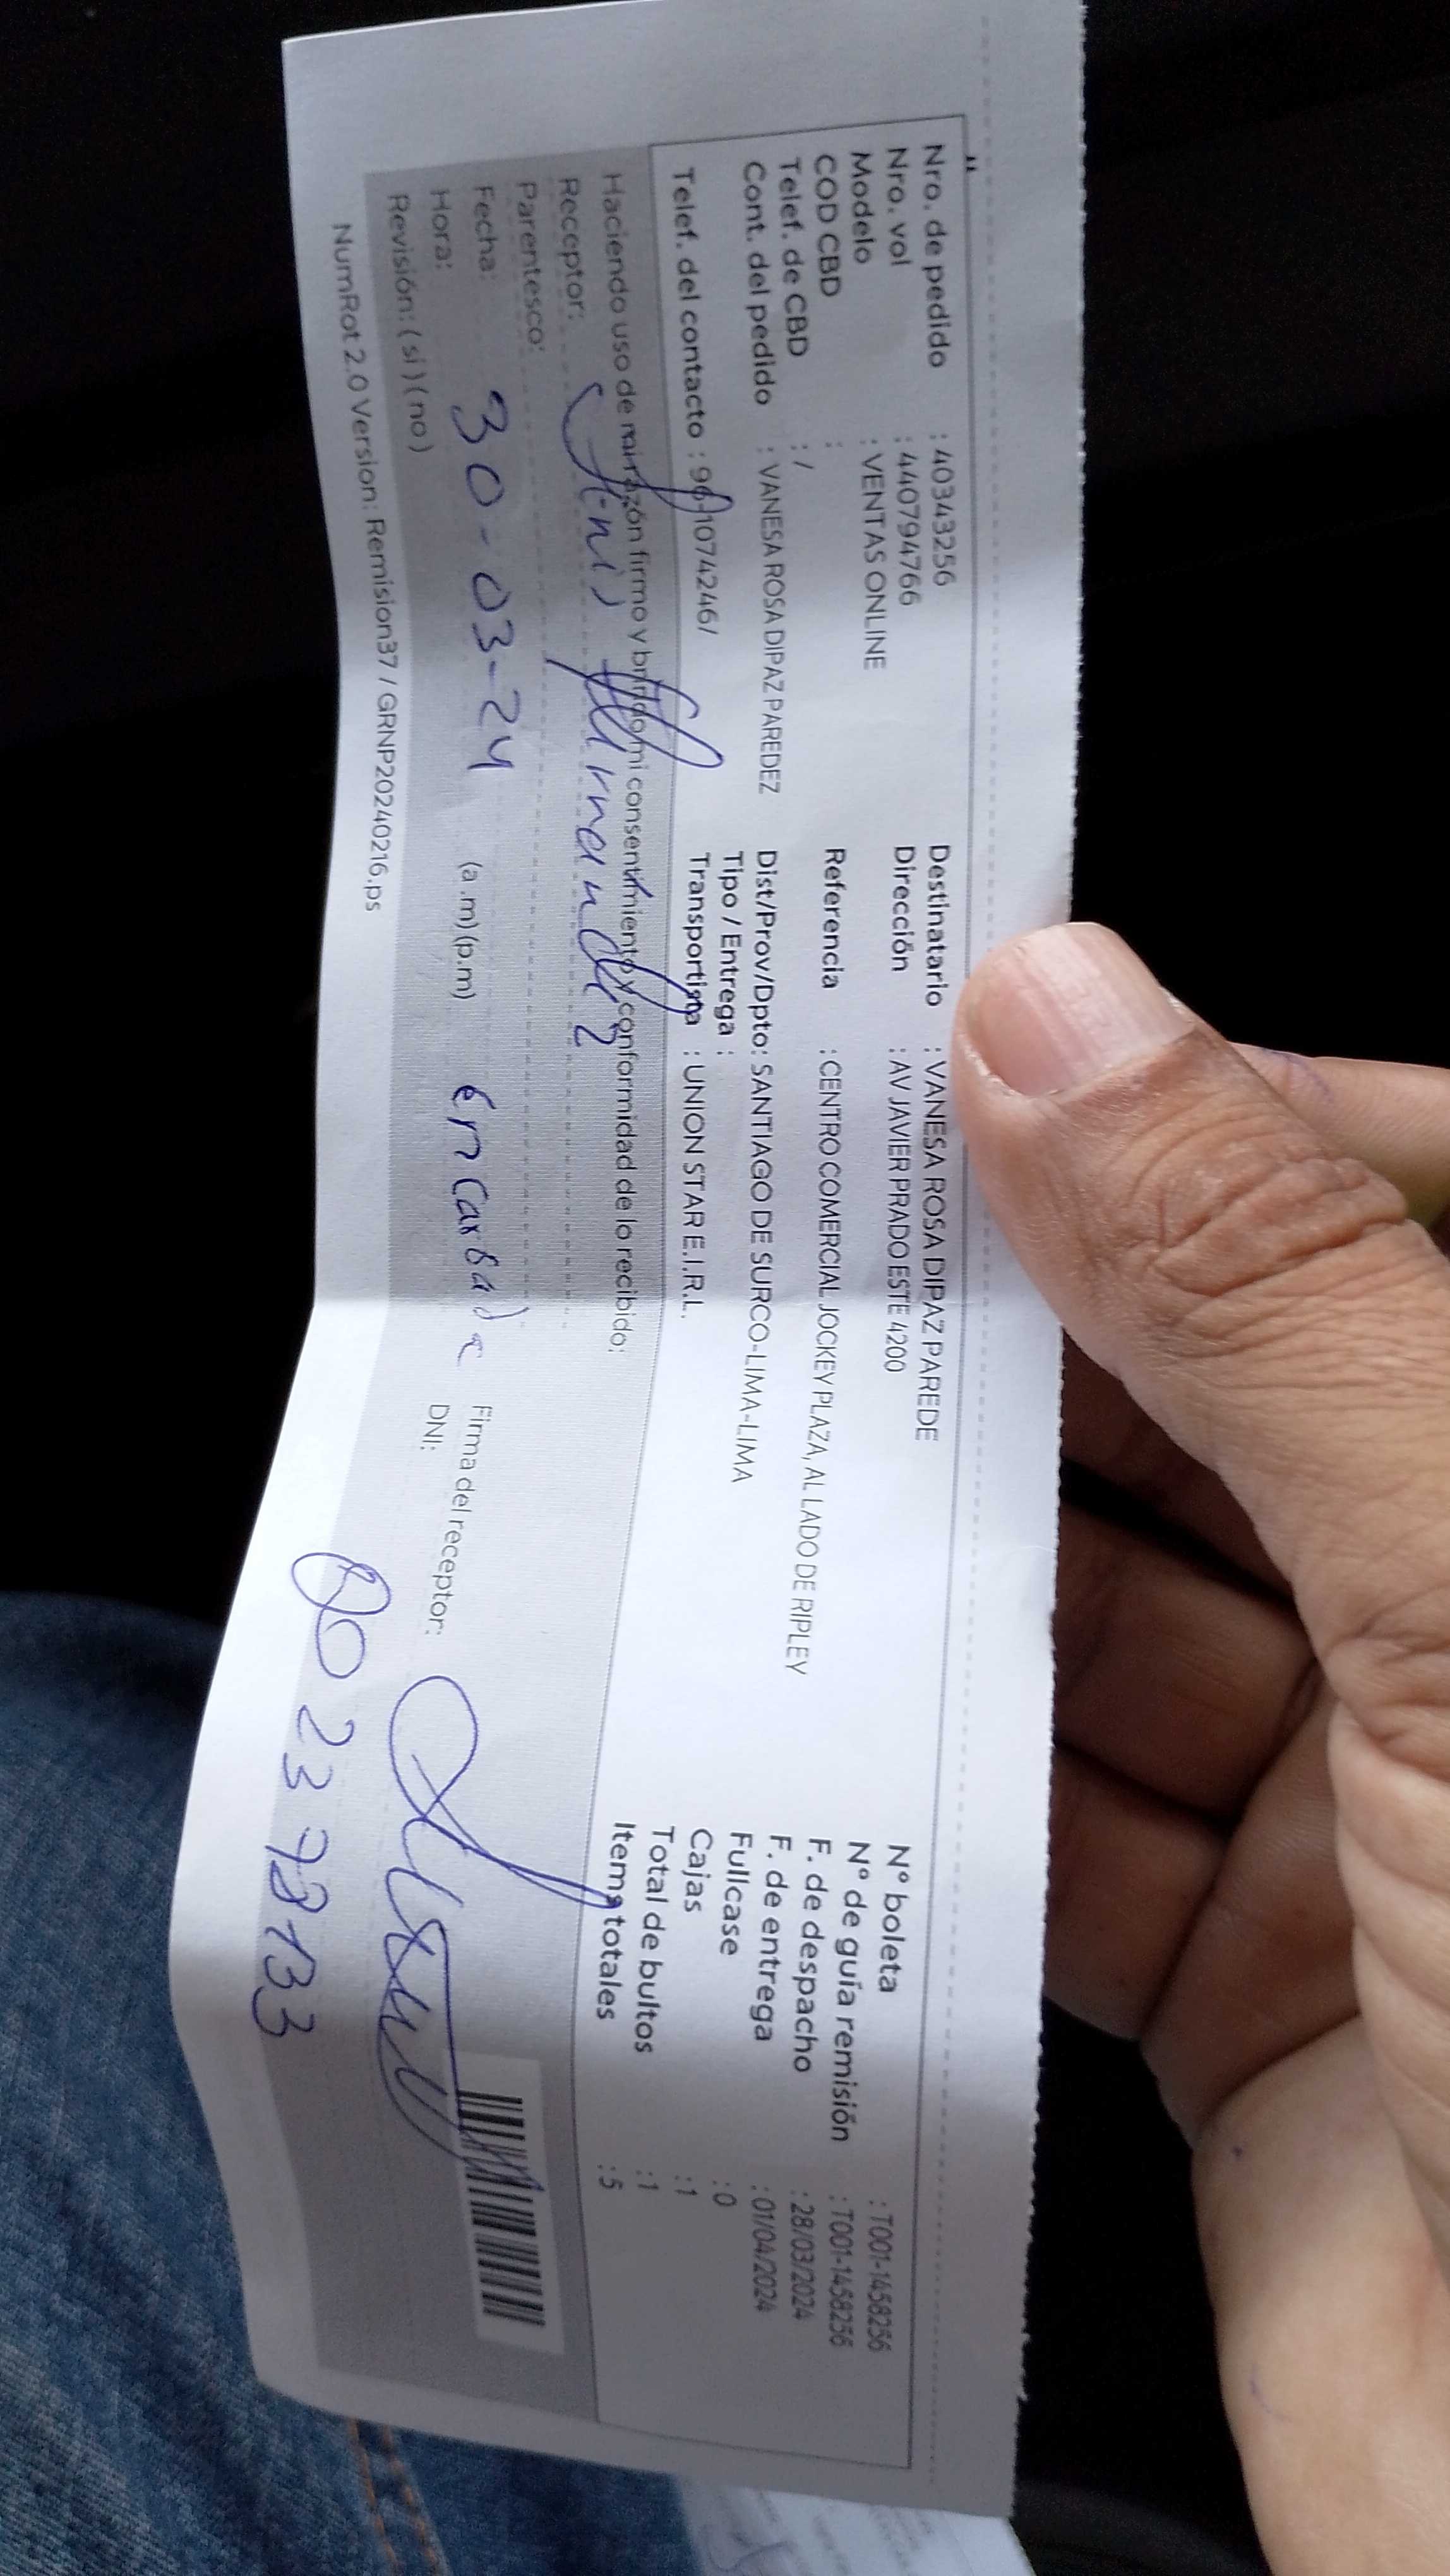 Nro. de pedido : 40343256
Nro. vol : 440794766
Modelo : VENTAS ONLINE
COD CBD :
Telef. de CBD : /
Cont. del pedido : VANESA ROSA DIPAZ PAREDEZ
Telef. del contacto : 961074246/
Destinatario : VANESA ROSA DIPAZ PAREDE
Dirección : AV JAVIER PRADO ESTE 4200
Referencia : CENTRO COMERCIAL JOCKEY PLAZA, AL LADO DE RIPLEY
Dist/Prov/Dpto: SANTIAGO DE SURCO-LIMA-LIMA
Tipo / Entrega :
Transportista : UNION STAR E.I.R.L.
N° boleta : T001-1458256
N° de guía remisión : T001-1458256
F. de despacho : 28/03/2024
F. de entrega : 01/04/2024
Fullcase : 0
Cajas : 1
Total de bultos : 1
Items totales : 5
Haciendo uso de mi razón firmo y brindo mi consentimiento y conformidad de lo recibido:
Receptor:
Parentesco:
Fecha: 30-03-24
Hora: (a.m)(p.m) encargada
Revisión: ( si ) ( no )
Firma del receptor:
DNI:
NumRot 2.0 Version: Remision37 / GRNP20240216.ps